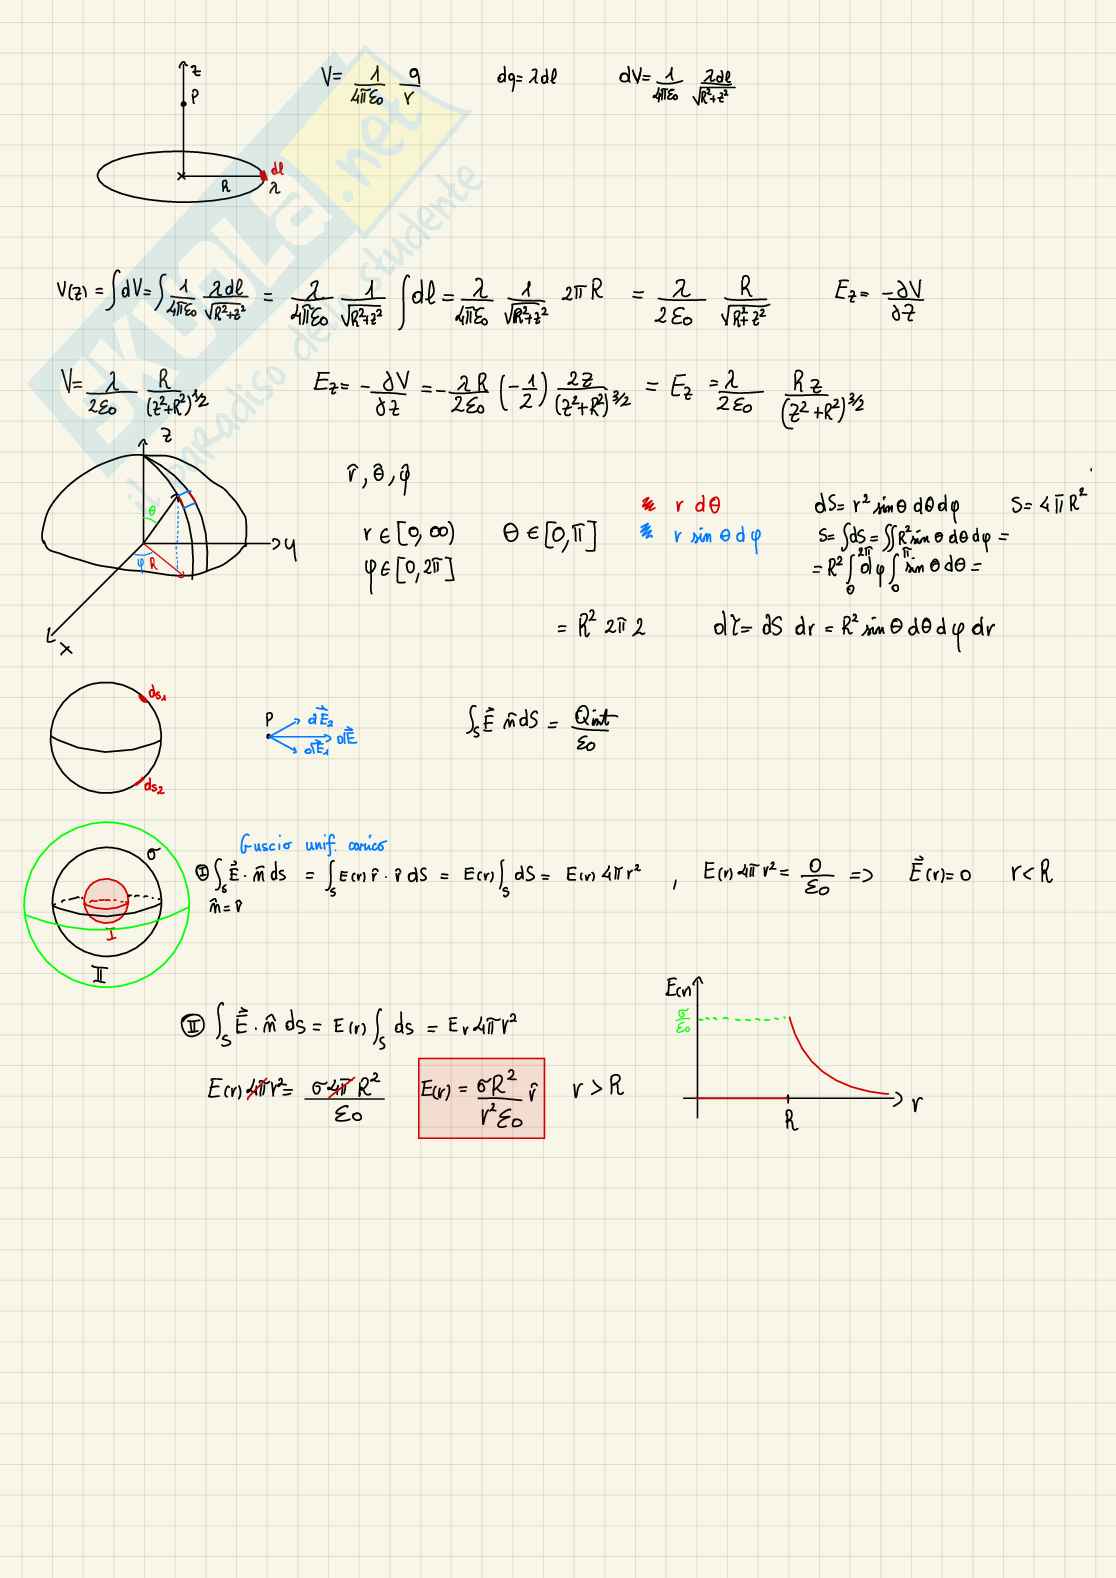 z
P
R
dl
λ
V= 1/4πε₀ q/r   dq= λdl   dV= 1/4πε₀ λdl/√R²+z²
SKUOLA.net
il paradiso dello studente
V(z) = ∫dV= ∫ 1/4πε₀ λdl/√R²+z² = λ/4πε₀ 1/√R²+z² ∫dl = λ/4πε₀ 1/√R²+z² 2πR = λ/2ε₀ R/√R²+z²   E_z= -∂V/∂z
V= λ/2ε₀ R/(z²+R²)^1/2   E_z= -∂V/∂z = -λR/2ε₀ (-1/2) 2z/(z²+R²)^3/2 = E_z = λ/2ε₀ Rz/(z²+R²)^3/2
z
θ
φ
R
y
x
r̂, θ̂, φ̂
r ∈ [0, ∞)   θ ∈ [0, π]
φ ∈ [0, 2π]
r dθ
r sin θ dφ
dS= r² sin θ dθ dφ   S= 4πR²
S= ∫dS = ∬R² sin θ dθ dφ =
= R² ∫₀^2π dφ ∫₀^π sin θ dθ =
= R² 2π 2   dτ= dS dr = R² sin θ dθ dφ dr
ds₁
ds₂
P
dE⃗₂
dE⃗
dE⃗₁
∫_S E⃗ n̂ dS = Qint/ε₀
σ
I
II
Guscio unif. carico
Ⓘ ∫_S E⃗ · n̂ ds = ∫_S E(r) r̂ · r̂ dS = E(r) ∫_S dS = E(r) 4πr² , E(r) 4πr² = 0/ε₀ => E⃗(r)=0   r<R
n̂ = r̂
Ⓘ︎Ⓘ ∫_S E⃗ · n̂ ds = E(r) ∫_S ds = E_r 4πr²
E(r) 4πr² = σ4πR²/ε₀   E(r) = σR²/r²ε₀ r̂   r > R
E(r)
σ/ε₀
R
r